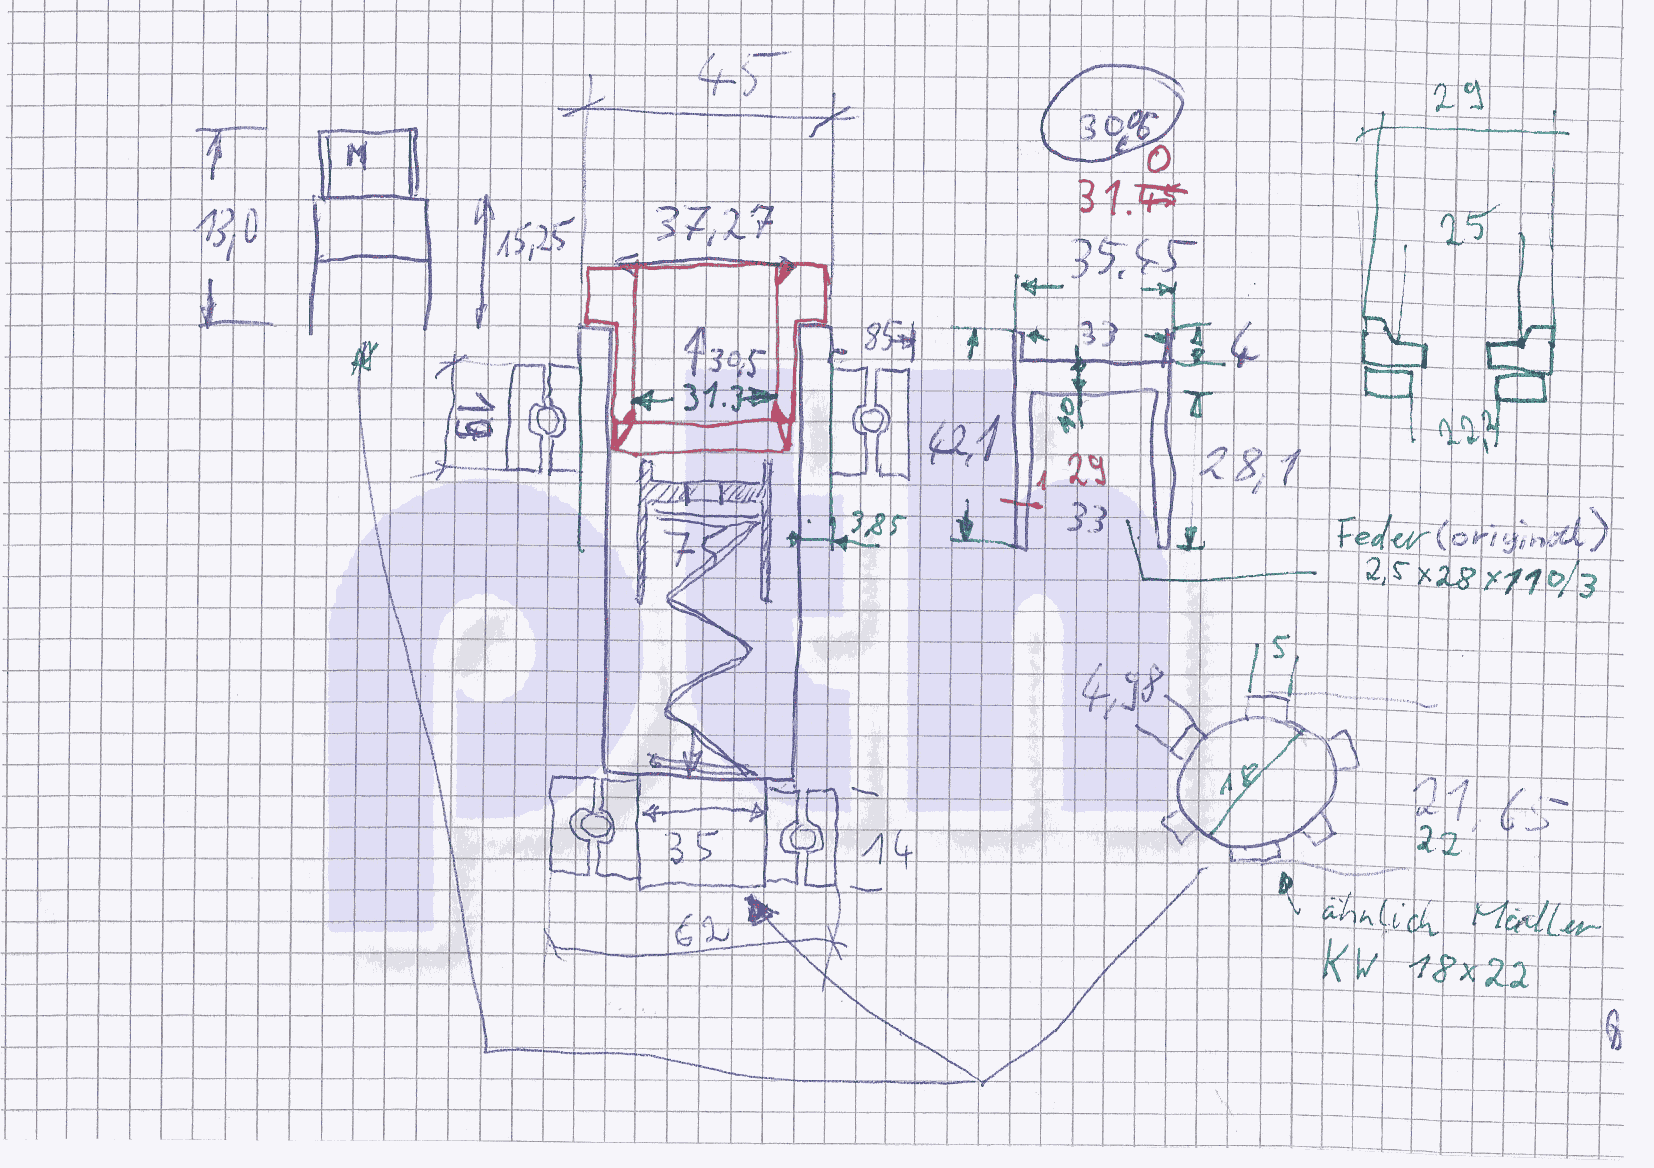 45
29
M
13,0
15,25
37,27
31.45
0
35.45
25
30,5
31.3
85
33
4
42,1
29
33
28,1
22,2
7
3,85
Feder (original)
2,5x28x110/3
5
4,98
18
21,65
22
35
14
62
ähnlich Mädler
KW 18x22